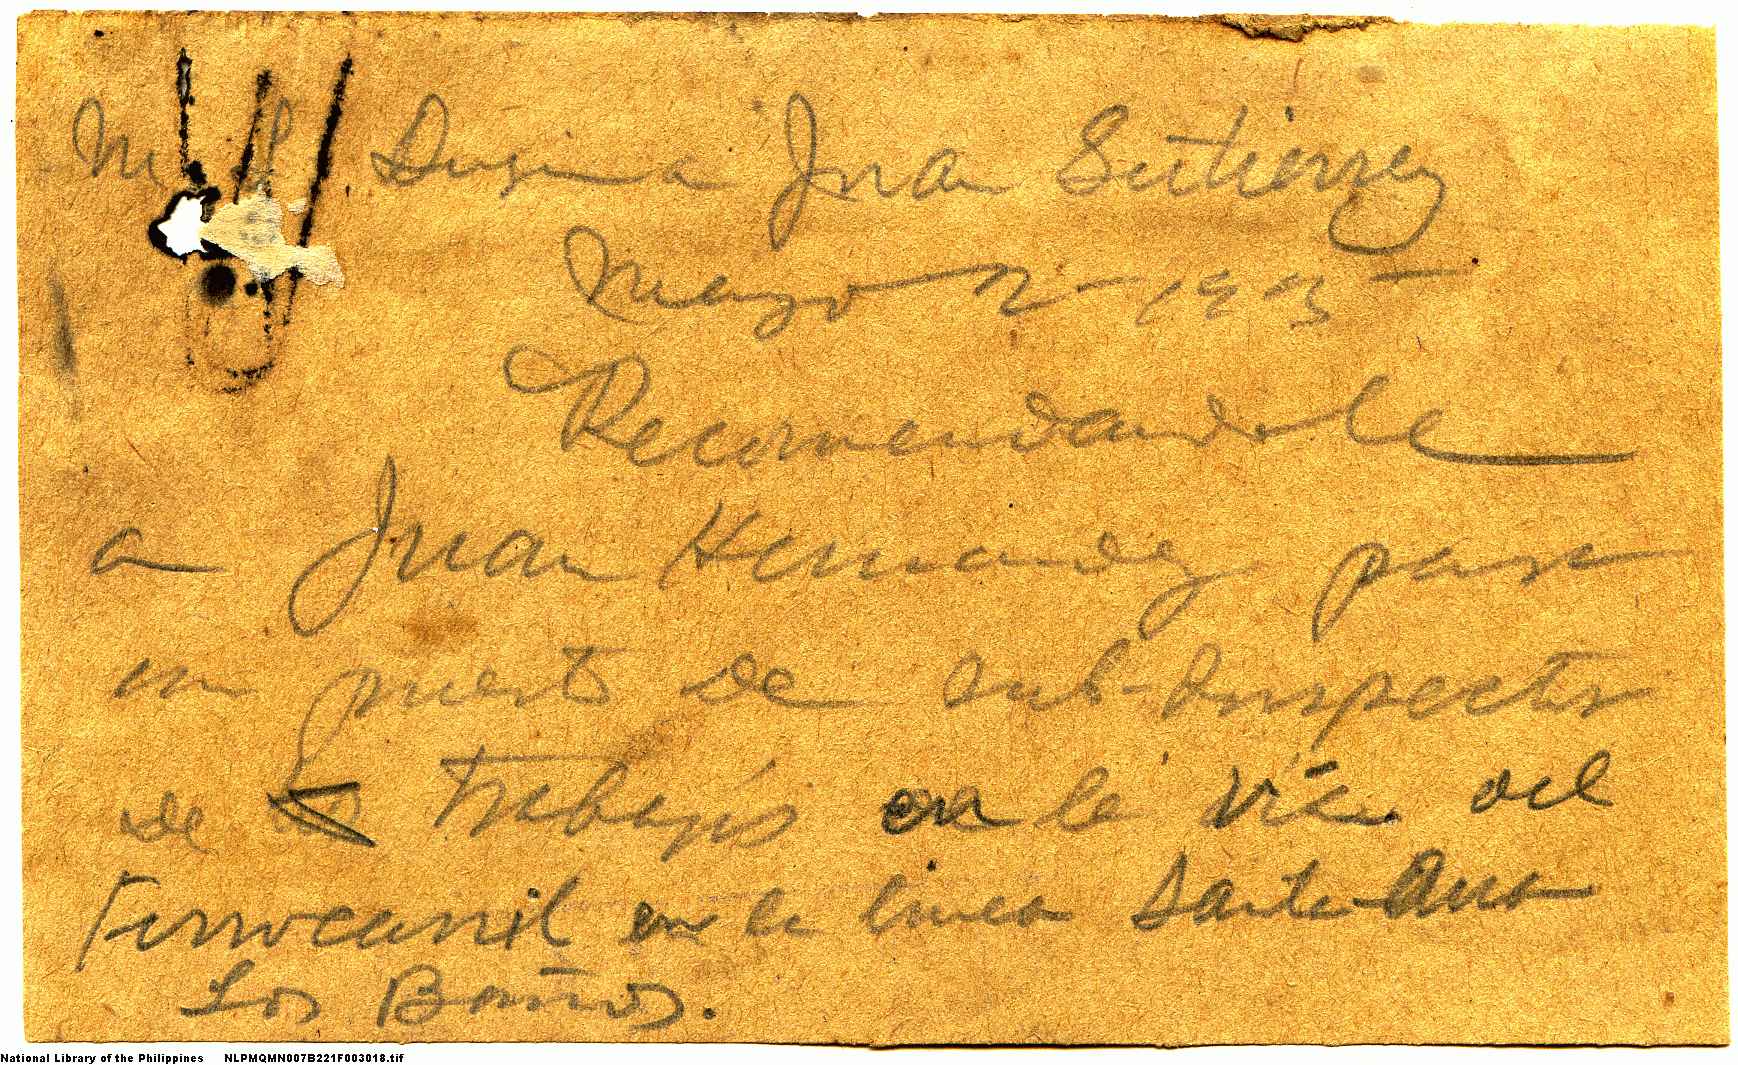 Juan Gutierrez
Mayo 2-1935
Recomendandole
a Juan Hernandez para
un puesto de Sub-Inspector
de Trabajos en la via del
Ferrocarril en la linea Santa Ana
Los Baños.
National Library of the Philippines NLPMQMN007B221F003018.tif